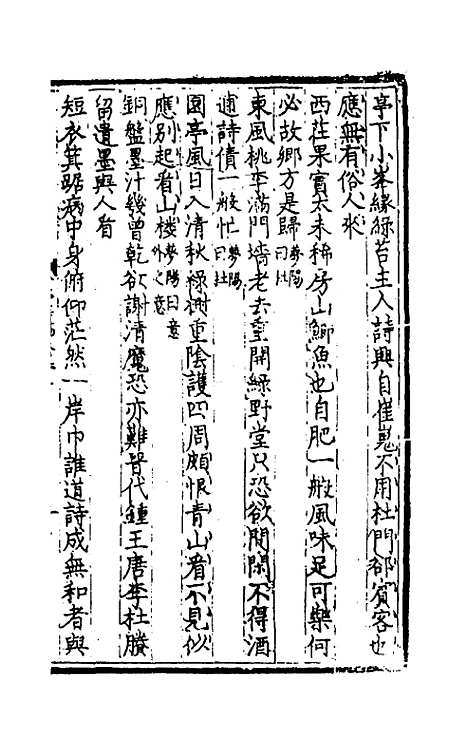 亭下小峯緣綠苔主人詩興自崔嵬不用杜門却賓客也
應無有俗人來
西莊果實太未稀房山鯽魚也自肥一般風味足可樂何
必故鄉方是歸夢陽曰壯
東風桃李滿門墻老去重開綠野堂只恐欲閒閑不得酒
逋詩債一般忙夢陽曰壯
園亭風日入清秋綠樹重陰護四周頗恨青山看不見似
應別起看山樓夢陽曰意外之意
銅盤墨汁幾曾乾欲謝清魔恐亦難晉代鍾王唐李杜賸
留遺墨與人看
短衣箕踞病中身俯仰茫然一岸巾誰道詩成無和者與